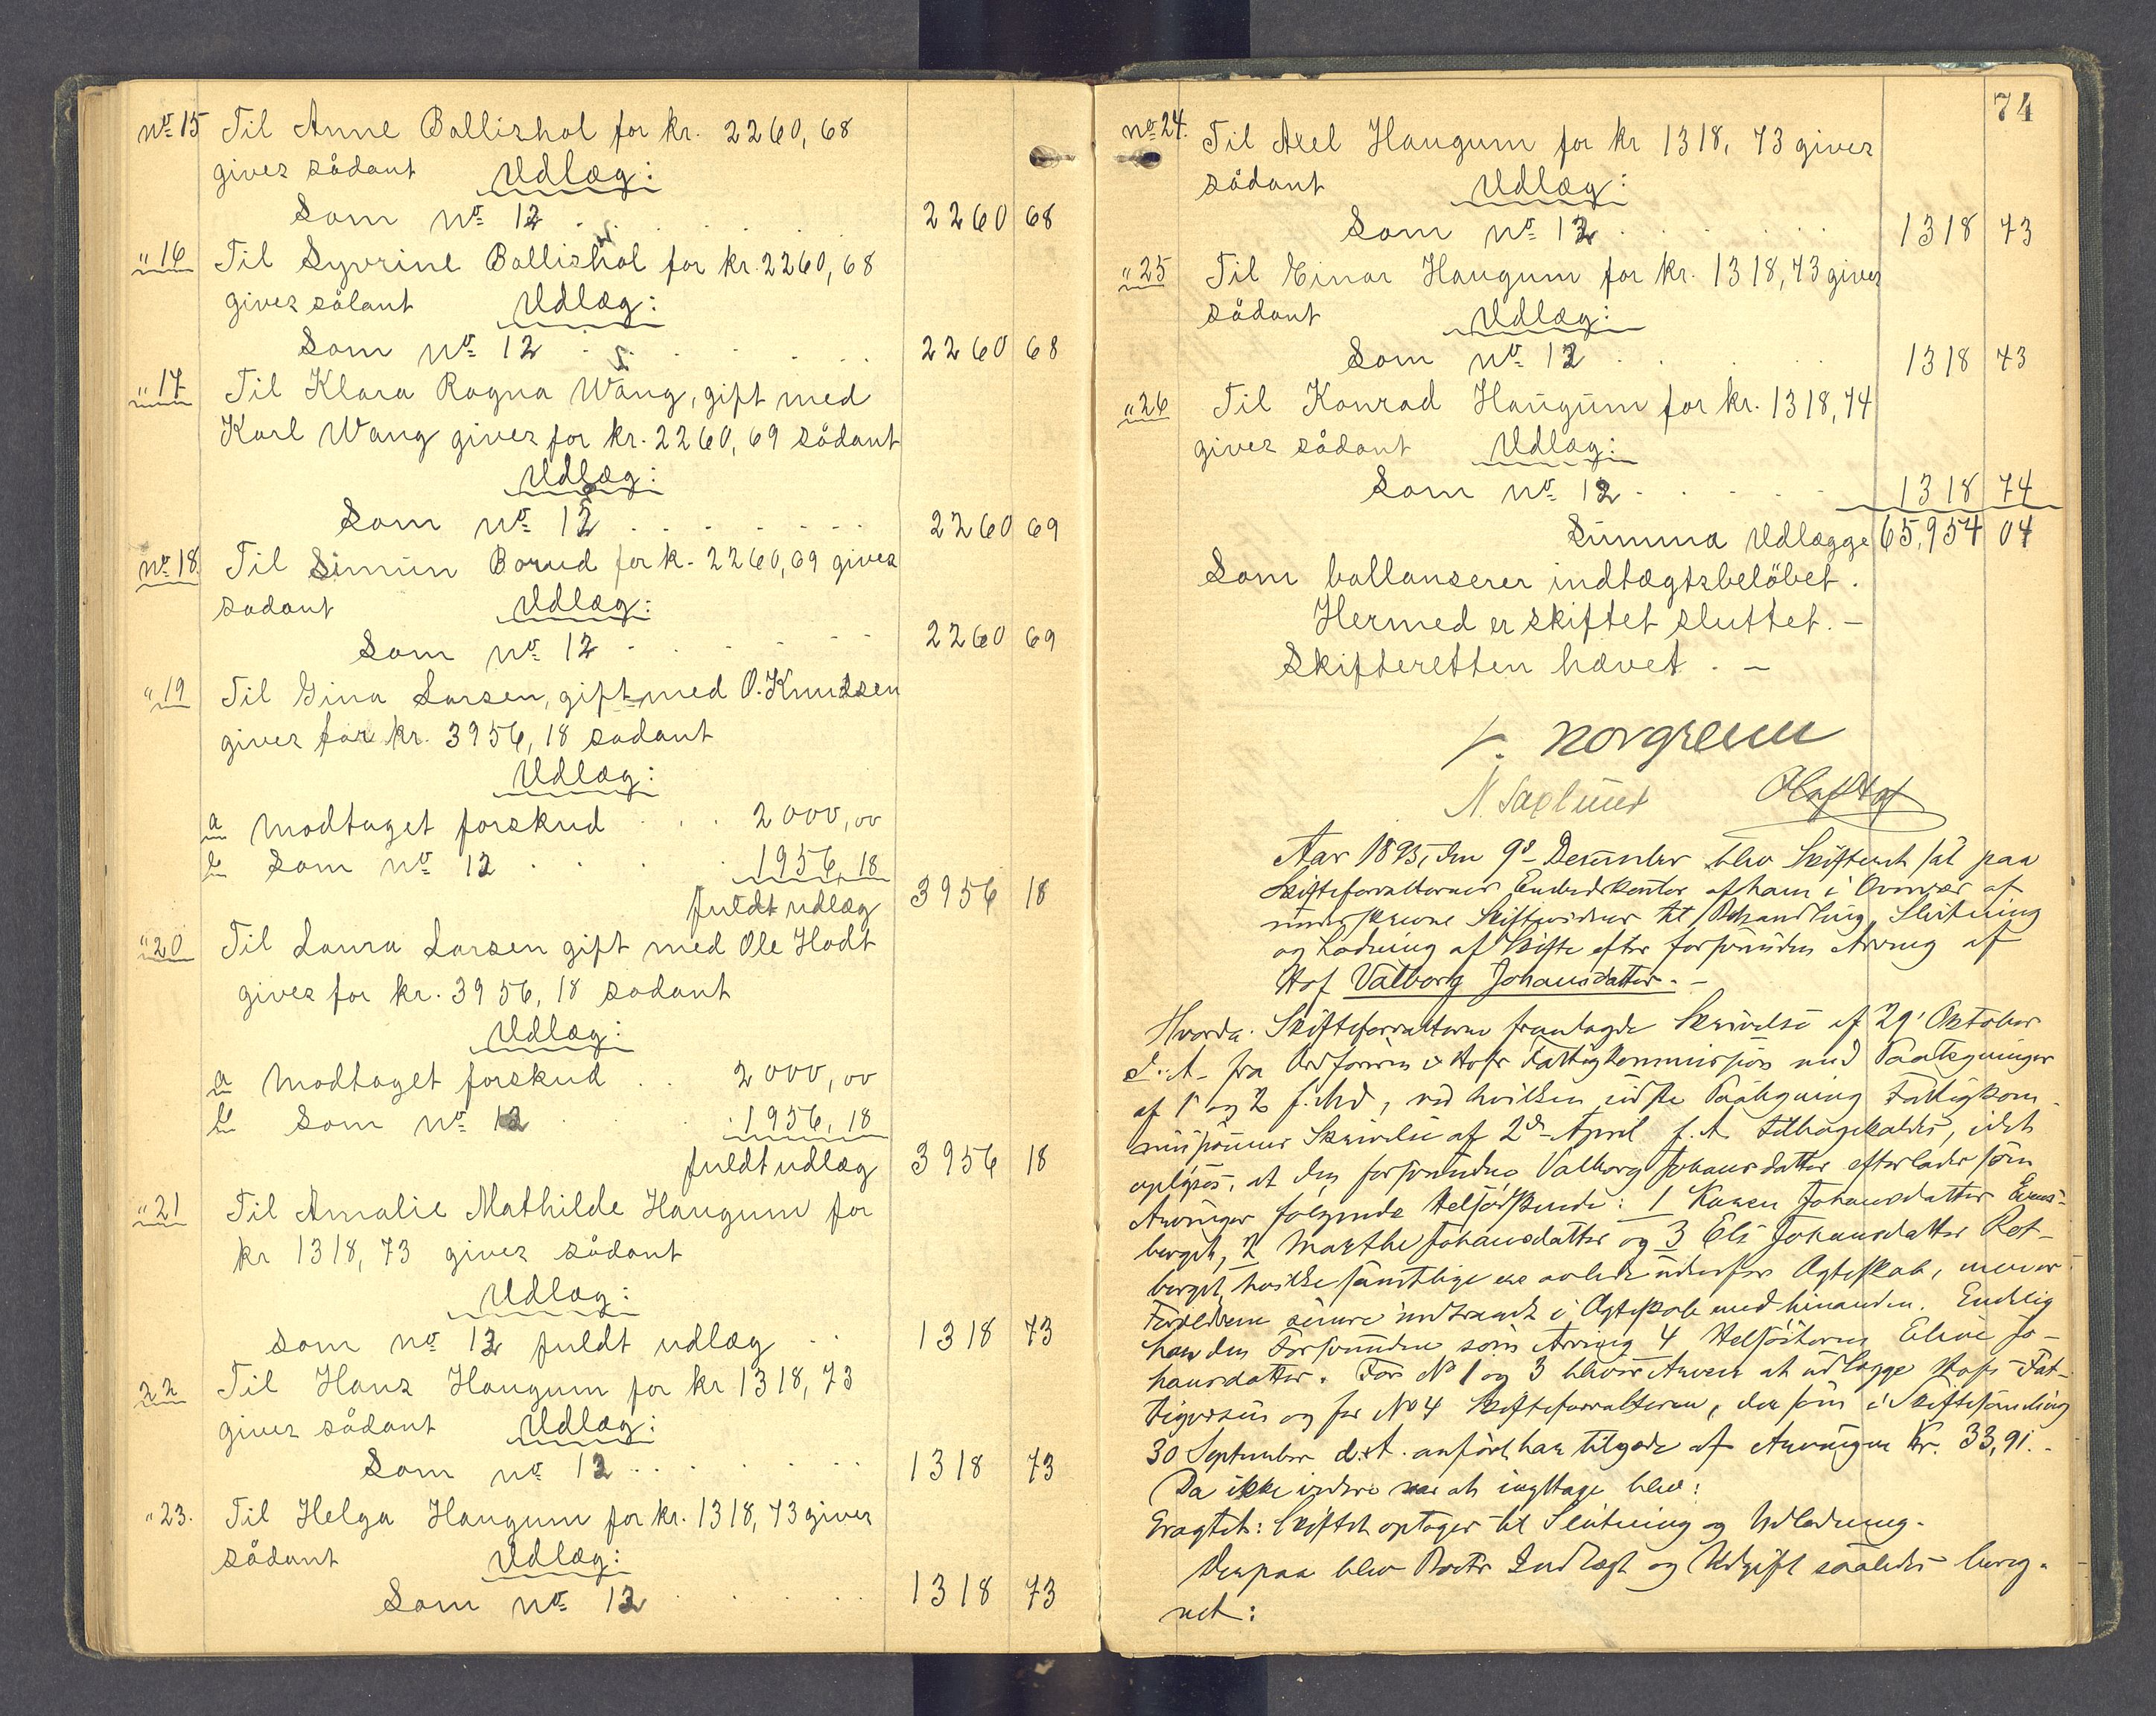 No 15 Til Anne Ballishol for kr. 2260,68
gives sådant Udlæg:
Som No 12 . . . . . 2260 68
" 16 Til Syvrine Ballishol for kr. 2260,68
gives sålant Udlæg:
Som No 12 . . . . . 2260 68
" 17 Til Klara Ragna Wang, gift med
Karl Wang gives for kr. 2260,69 sådant
Udlæg:
Som No 12 . . . . . 2260 69
No 18. Til Simun Borud for k. 2260,69 gives
sadant Udlæg:
Som No 12 . . . . . 2260 69
" 19 Til Gina Larsen, gift med O. Knudsen
gives for kr. 3956,18 sadant
Udlæg:
a Modtaget forskud . . . 2000,00
b Som No 12 . . . . 1956,18
fuldt udlæg 3956 18
" 20 Til Laura Larsen gift med Ole Hodt
gives for kr. 3956,18 sadant
Udlæg:
a Modtaget forskud . . 2000,00
b Som No 12 . . . 1956,18
fuldt udlæg 3956 18
" 21 Til Amalie Mathilde Haugum for
kr 1318,73 gives sådant
Udlæg:
som No 12 fuldt udlæg . . 1318 73
22 Til Hans Haugum for kr 1318,73
gives sådant Udlæg:
Som No 12 . . . . . 1318 73
" 23. Til Helga Haugum for kr. 1318,73 gives
sådant Udlæg:
Som No 12 . . . . . 1318 73
74
No 24. Til Axel Haugum for kr 1318,73 gives
sådant Udlæg:
Som No 12 . . . . . 1318 73
" 25 Til Einar Haugum for kr. 1318,73 gives
sådant Udlæg:
Som No 12 . . . . 1318 73
" 26 Til Konrad Haugum for kr. 1318,74
gives sådant Udlæg:
Som No 12 . . . . . 1318 74
Summa Udlægge 65,954 04
Som ballanserer indtægtsbeløbet.
Hermed er skiftet sluttet. –
Skifteretten hævet. –
Norgrenn
Aar 1895, den 9de December blev Skifteret sat paa
Skifteforvalterens Embedskontor af ham i Overvær af
underskrevne Skiftevidner til Behandling, Slutning
og Lodning af Skifte efter forsvunden Arving af
Hof Valborg Johansdatter. –
Hvorda: Skifteforvalteren fremlagde Skrivelse af 29' Oktober
d. A. fra Ordføreren i Hofs Fattigkommission med Paategninger
af 1 og 2 f. Md, ved hvilken sidste Paategning Fattigkom-
missionens Skrivelse af 2den April f. A. tilbagekaldes, idet
oplyses, at den forsvundne Valborg Johansdatter efterlader som
Arvinger følgende Helsødskende: 1 Karen Johansdatter Evens-
berget, 2 Marthe Johansdatter og 3 Eli Johansdatter Rot-
berget, hvilke samtlige ere avlede udenfor Ægteskab, men er
Forældrene senere indtraadt i Ægteskab med hinanden. Endelig
har den Forsvundne som Arving 4 Helsøsteren Eline Jo-
hansdatter. For No 1 og 3 bliver Arven at udlægge Hofs Fat-
tigvæsen og for No 4 Skifteforvalteren, der som i Skiftesamling
30 September d. A. anført har tilgode af Arvingen Kr. 33,91. –
Da ikke videre var at iagttage blev:
Eragtet: Skiftet optages til Slutning og Udlodning.
Derpaa blev Boets Indtægt og Udgift saaledes bereg-
net: